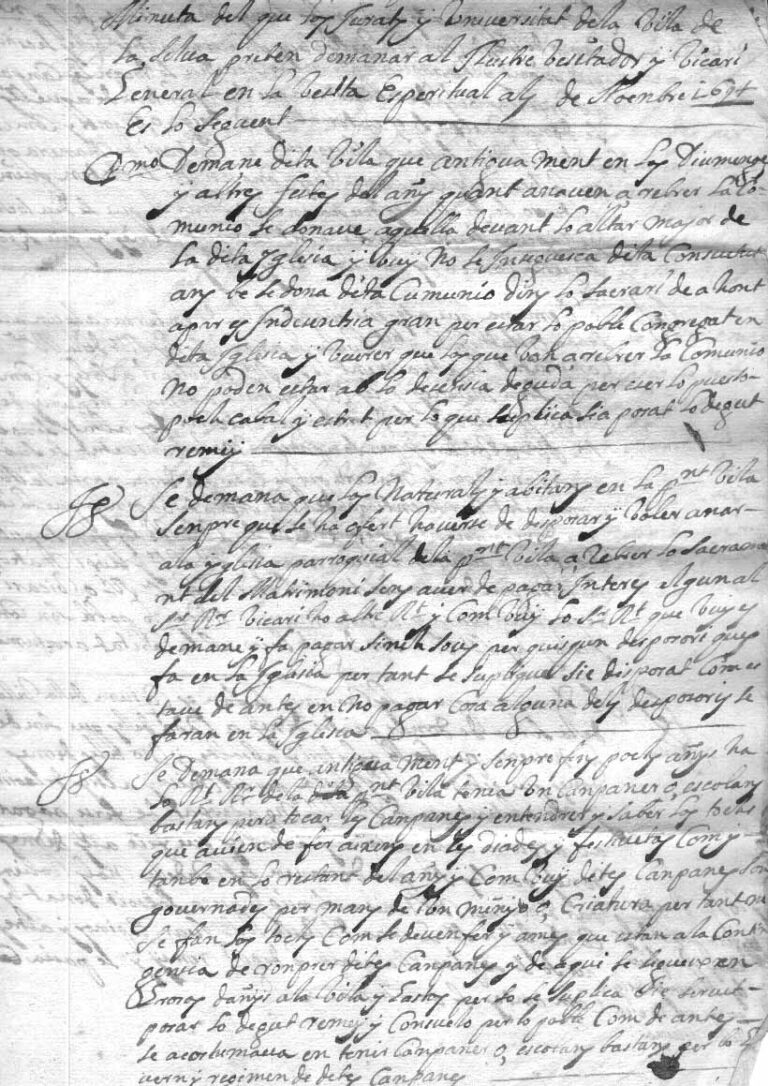 Minuta del que los Jurats y Universitat dela Vila de
la Selva preten demanar al Illustre vesitador y Vicari
General en la Vesita Esperitual als de Noenbre 1674
Es lo seguent
Pmo Demane dita Vila que antigua ment en los Diumenges
y altres festes del añy quant anaven a rebrer la Co-
munio se donave aquella devant lo altar major de
la dita Iglesia y vuy no se seguesca dita Consuetut
ans be se dona dita Cumunio dins lo sacrari de ahont
apar es Indecentia gran per estar lo poble Congregat en
dita Iglesia y veurer que los que van a rebrer la Comunio
No poden estar ab la desensia deguda per eser lo puesto
poch capas y estret per lo que suplica sia posat lo degut
remey
Se demana que los Naturals y abitans en la pnt Vila
Senpre que se ha ofert haverse de desposar y voler anar
a la yglesia parroquial dela pnt Vila a rebrer lo Sacrame
nt del Matrimoni sens aver de pagar Interes algun al
Sr Rr Vicari ho altre Rt y Com vuy lo Sr Rt que vuy es
demane y fa pagar sinch sous per quiscun desposori ques
fa en la Iglesia per tant se suplique sie disposat Com es
tave de antes en no pagar Cosa alguna dels desposoris se
faran en la Iglesia
Se Demana que antigua ment y senpre fins pochs añys ha
lo Rt Rr de la pnt vila tenia un Canpaner o, escolans
bastans pera tocar les Canpanes y entendrer y saber los tochs
que avien de fer aixi en les diades y festivetats Com
tanbe en lo restant del añy y Com vuy dites Canpanes son
governades per mans de un minyo o, Criatura per tant no
se fan los tochs Com se deven fer y a mes que estan a la Contin
gencia de ronprer dites Canpanes y de aqui se segueixen
Grosos dañys a la Vila y gastos per so se suplica sie servit
posar lo degut remey y Consuelo per lo poble Com de antes
se acostumava en tenir Canpaner o, escolans bastans per lo go
vern y regimen de dites Canpanes